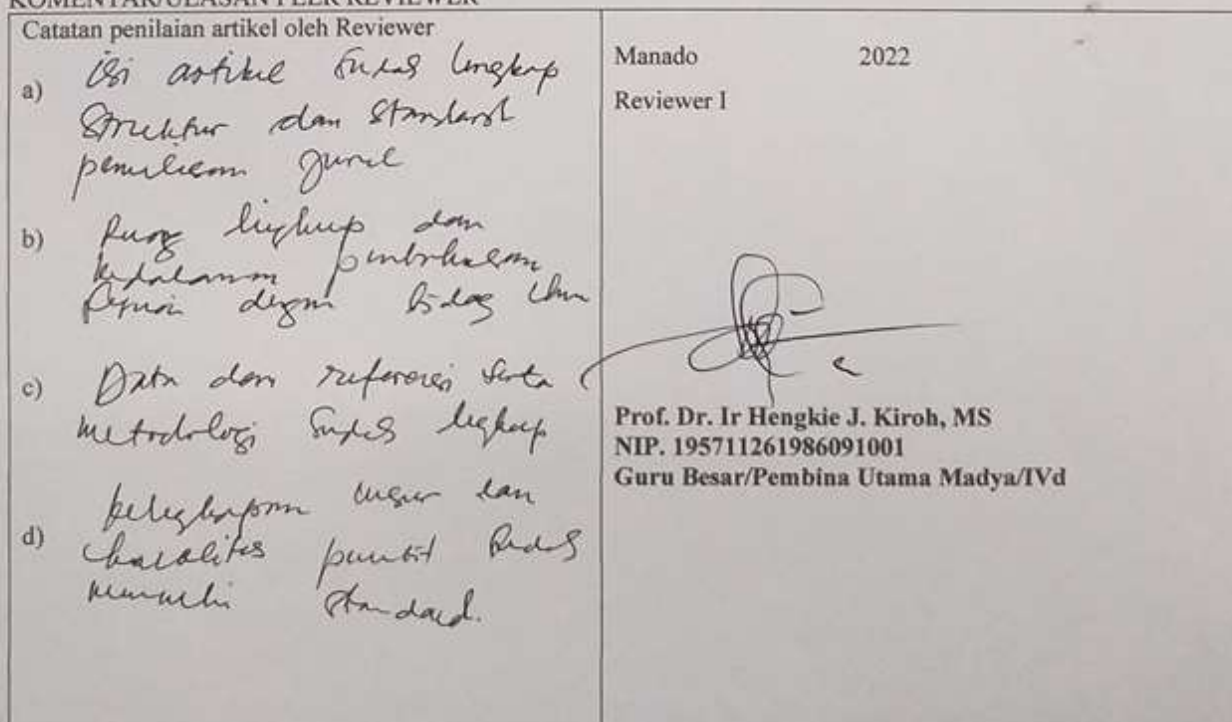 KOMENTAR/ULASAN PEER REVIEWER
Catatan penilaian artikel oleh Reviewer
a) isi artikel sudah lengkap
struktur dan standard
penulisan jurnal
b) Ruang lingkup dan
kedalaman pembahasan
sesuai dengan bidang ilmu
c) Data dan referensi serta
metodologi sudah lengkap
d) kelengkapan unsur dan
kualitas penerbit sudah
memenuhi standard.
Manado 2022
Reviewer I
Prof. Dr. Ir Hengkie J. Kiroh, MS
NIP. 195711261986091001
Guru Besar/Pembina Utama Madya/IVd